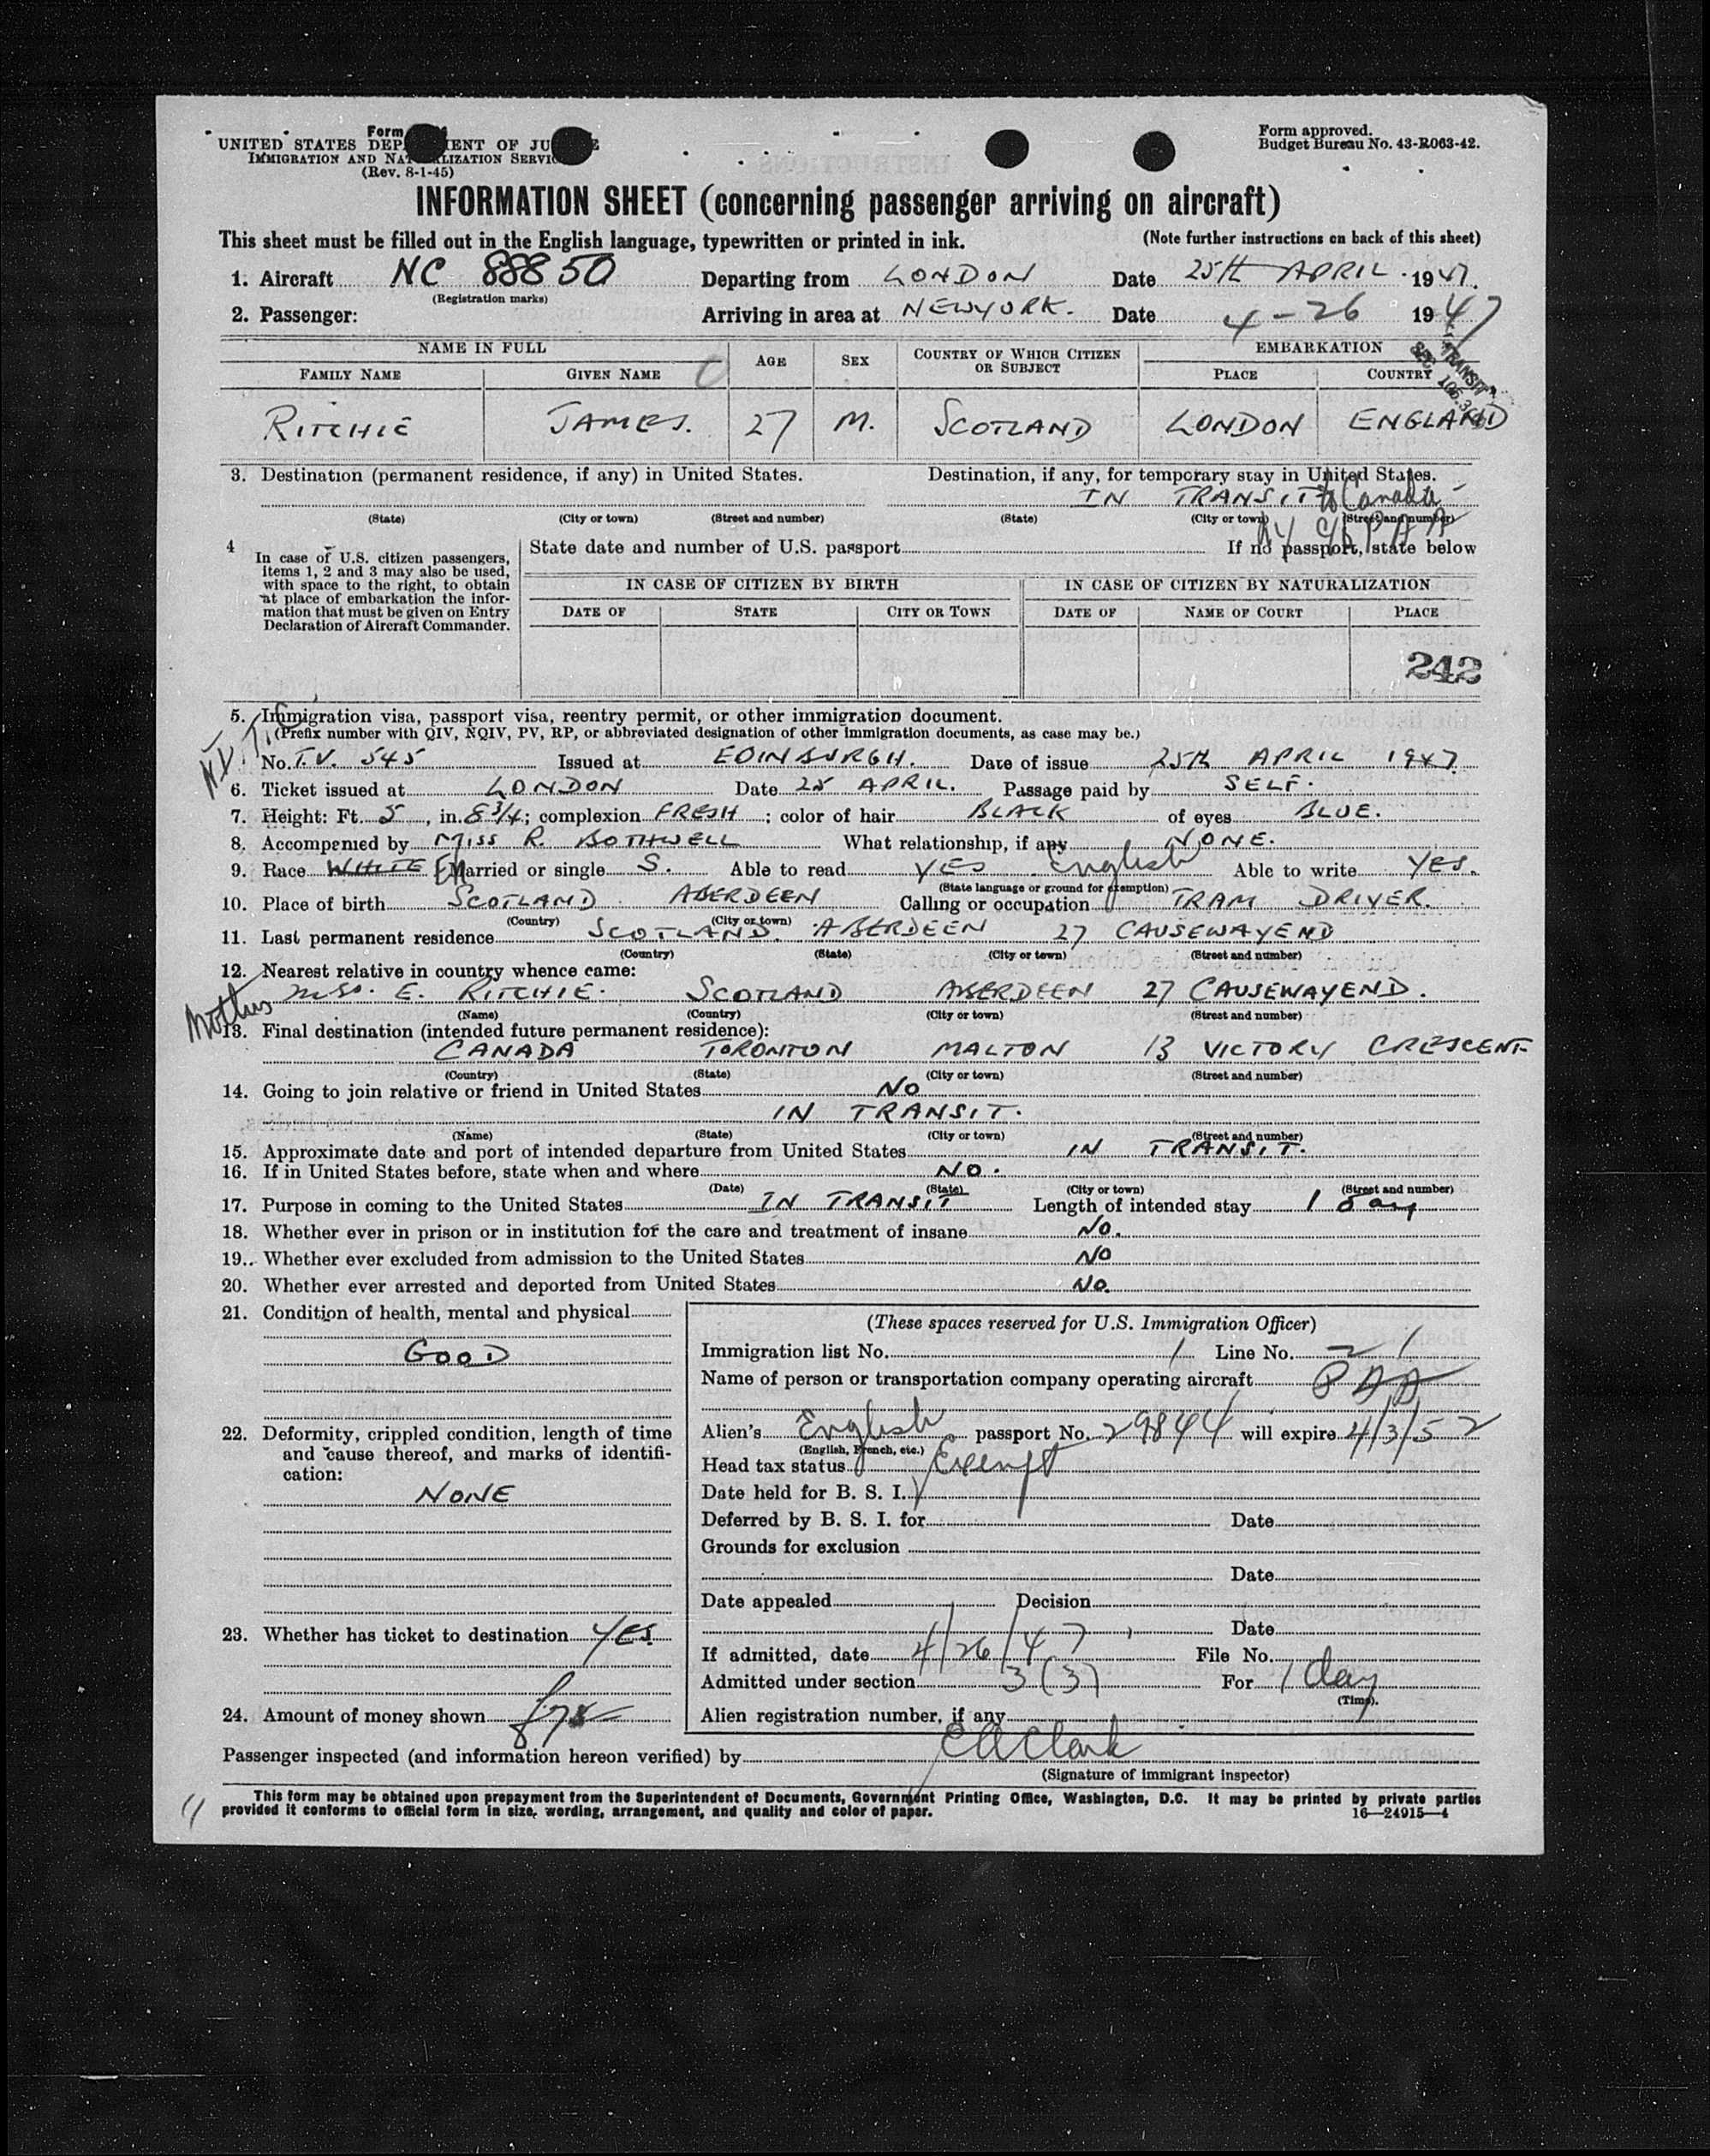 Form
UNITED STATES DEP MENT OF JU E
IMMIGRATION AND NAT LIZATION SERVIC
(Rev. 8-1-45)
Form approved.
Budget Bureau No. 43-R063-42.
INFORMATION SHEET (concerning passenger arriving on aircraft)
This sheet must be filled out in the English language, typewritten or printed in ink. (Note further instructions on back of this sheet)
1. Aircraft NC 88850 Departing from LONDON Date 25th APRIL. 1947.
(Registration marks)
2. Passenger: Arriving in area at NEWYORK. Date 4-26 1947
NAME IN FULL AGE SEX COUNTRY OF WHICH CITIZEN OR SUBJECT EMBARKATION
FAMILY NAME GIVEN NAME PLACE COUNTRY
TRANSIT
RITCHIE JAMES. 27 M. SCOTLAND LONDON ENGLAND
3. Destination (permanent residence, if any) in United States. Destination, if any, for temporary stay in United States.
IN TRANSIT to Canada
(State) (City or town) (Street and number) (State) (City or town) (Street and number)
4 In case of U.S. citizen passengers, items 1, 2 and 3 may also be used, with space to the right, to obtain at place of embarkation the information that must be given on Entry Declaration of Aircraft Commander.
State date and number of U.S. passport If no passport, state below
IN CASE OF CITIZEN BY BIRTH IN CASE OF CITIZEN BY NATURALIZATION
DATE OF STATE CITY OR TOWN DATE OF NAME OF COURT PLACE
242
5. Immigration visa, passport visa, reentry permit, or other immigration document.
(Prefix number with QIV, NQIV, PV, RP, or abbreviated designation of other immigration documents, as case may be.)
No. T.V. 545 Issued at EDINBURGH. Date of issue 25th APRIL 1947.
6. Ticket issued at LONDON Date 25 APRIL. Passage paid by SELF.
7. Height: Ft. 5, in. 8 3/4; complexion FRESH; color of hair BLACK of eyes BLUE.
8. Accompanied by MISS R. BOTHWELL What relationship, if any NONE.
9. Race WHITE Married or single S. Able to read YES English Able to write YES.
(State language or ground for exemption)
10. Place of birth SCOTLAND ABERDEEN Calling or occupation TRAM DRIVER.
(Country) (City or town)
11. Last permanent residence SCOTLAND. ABERDEEN 27 CAUSEWAYEND
(Country) (State) (City or town) (Street and number)
12. Nearest relative in country whence came:
Mother Mrs. E. RITCHIE. SCOTLAND ABERDEEN 27 CAUSEWAYEND.
(Name) (Country) (City or town) (Street and number)
13. Final destination (intended future permanent residence):
CANADA TORONTON MALTON 13 VICTORY CRESCENT
(Country) (State) (City or town) (Street and number)
14. Going to join relative or friend in United States NO
IN TRANSIT.
(Name) (State) (City or town) (Street and number)
15. Approximate date and port of intended departure from United States IN TRANSIT.
16. If in United States before, state when and where NO.
(Date) (State) (City or town) (Street and number)
17. Purpose in coming to the United States IN TRANSIT Length of intended stay 1 Day
18. Whether ever in prison or in institution for the care and treatment of insane NO.
19. Whether ever excluded from admission to the United States NO
20. Whether ever arrested and deported from United States NO.
21. Condition of health, mental and physical
GOOD
22. Deformity, crippled condition, length of time and cause thereof, and marks of identification:
NONE
23. Whether has ticket to destination YES
24. Amount of money shown
(These spaces reserved for U.S. Immigration Officer)
Immigration list No. 1 Line No. 2 1
Name of person or transportation company operating aircraft PAA
Alien's English passport No. 29844 will expire 4/3/52
(English, French, etc.)
Head tax status Exempt
Date held for B. S. I.
Deferred by B. S. I. for Date
Grounds for exclusion
Date
Date appealed Decision
Date
If admitted, date 4/26/47 File No.
Admitted under section 3(3) For 1 day
(Time).
Alien registration number, if any
Passenger inspected (and information hereon verified) by EAClark
(Signature of immigrant inspector)
This form may be obtained upon prepayment from the Superintendent of Documents, Government Printing Office, Washington, D.C. It may be printed by private parties
provided it conforms to official form in size, wording, arrangement, and quality and color of paper. 16—24915—4